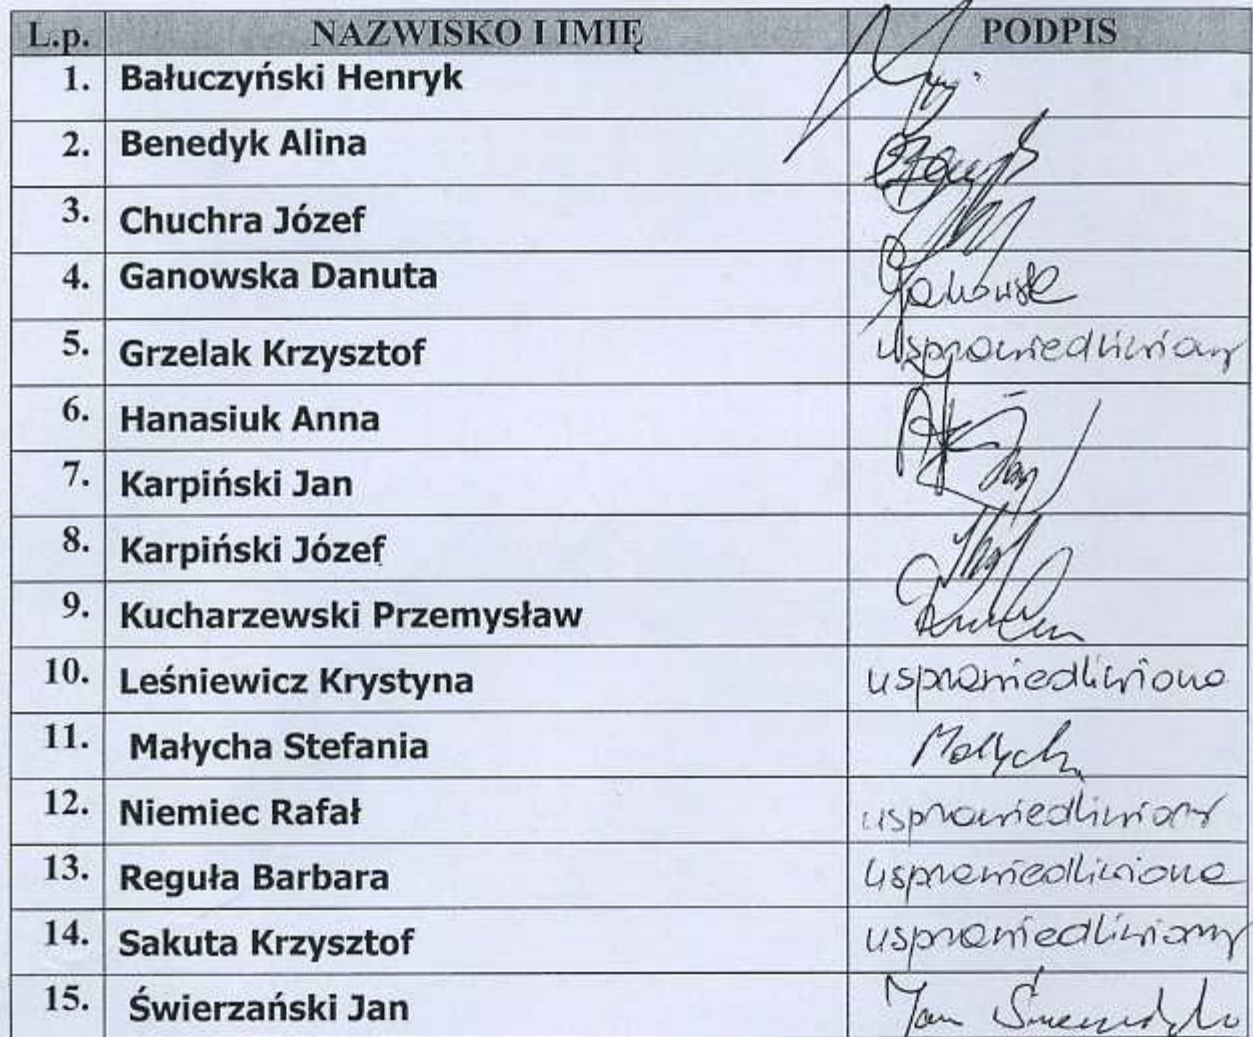 L.p. NAZWISKO I IMIĘ PODPIS
1. Bałuczyński Henryk
2. Benedyk Alina
3. Chuchra Józef
4. Ganowska Danuta
5. Grzelak Krzysztof usprawiedliwiony
6. Hanasiuk Anna
7. Karpiński Jan
8. Karpiński Józef
9. Kucharzewski Przemysław
10. Leśniewicz Krystyna usprawiedliwiona
11. Małycha Stefania Małycha
12. Niemiec Rafał usprawiedliwiony
13. Reguła Barbara usprawiedliwiona
14. Sakuta Krzysztof usprawiedliwiony
15. Świerzański Jan Jan